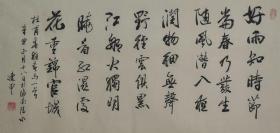 好雨知时節
當春乃發生
随風潜入夜
潤物細無聲
野徑雲俱黑
江船火獨明
曉看紅濕處
花重錦官城
杜甫春夜喜雨一首
月十八日於